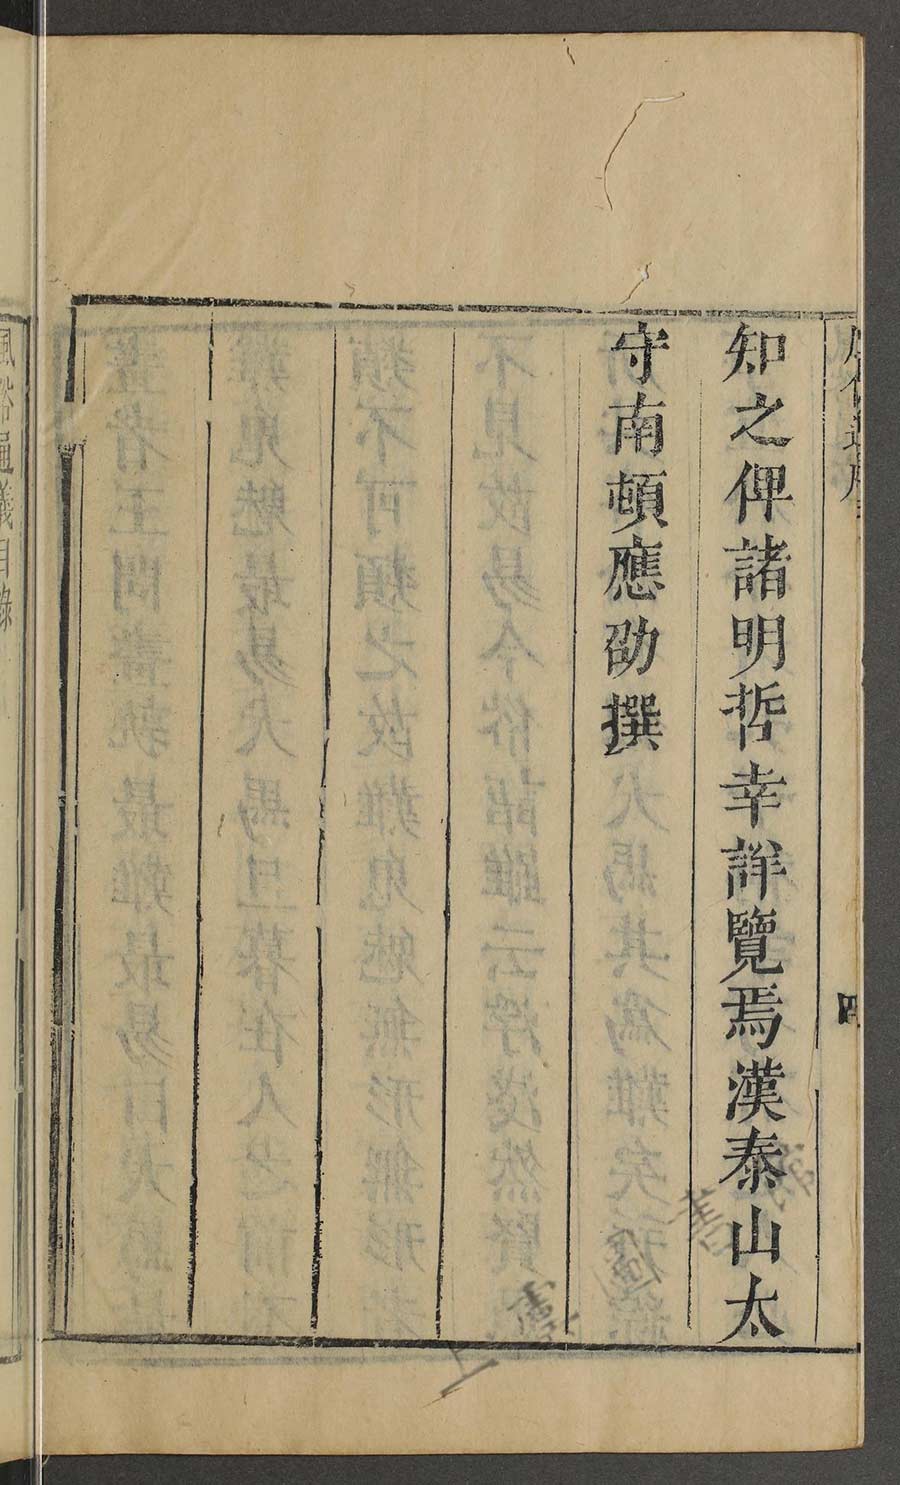 四
知之俾諸明哲幸詳覽焉漢泰山太
守南頓應劭撰
風俗通義目錄